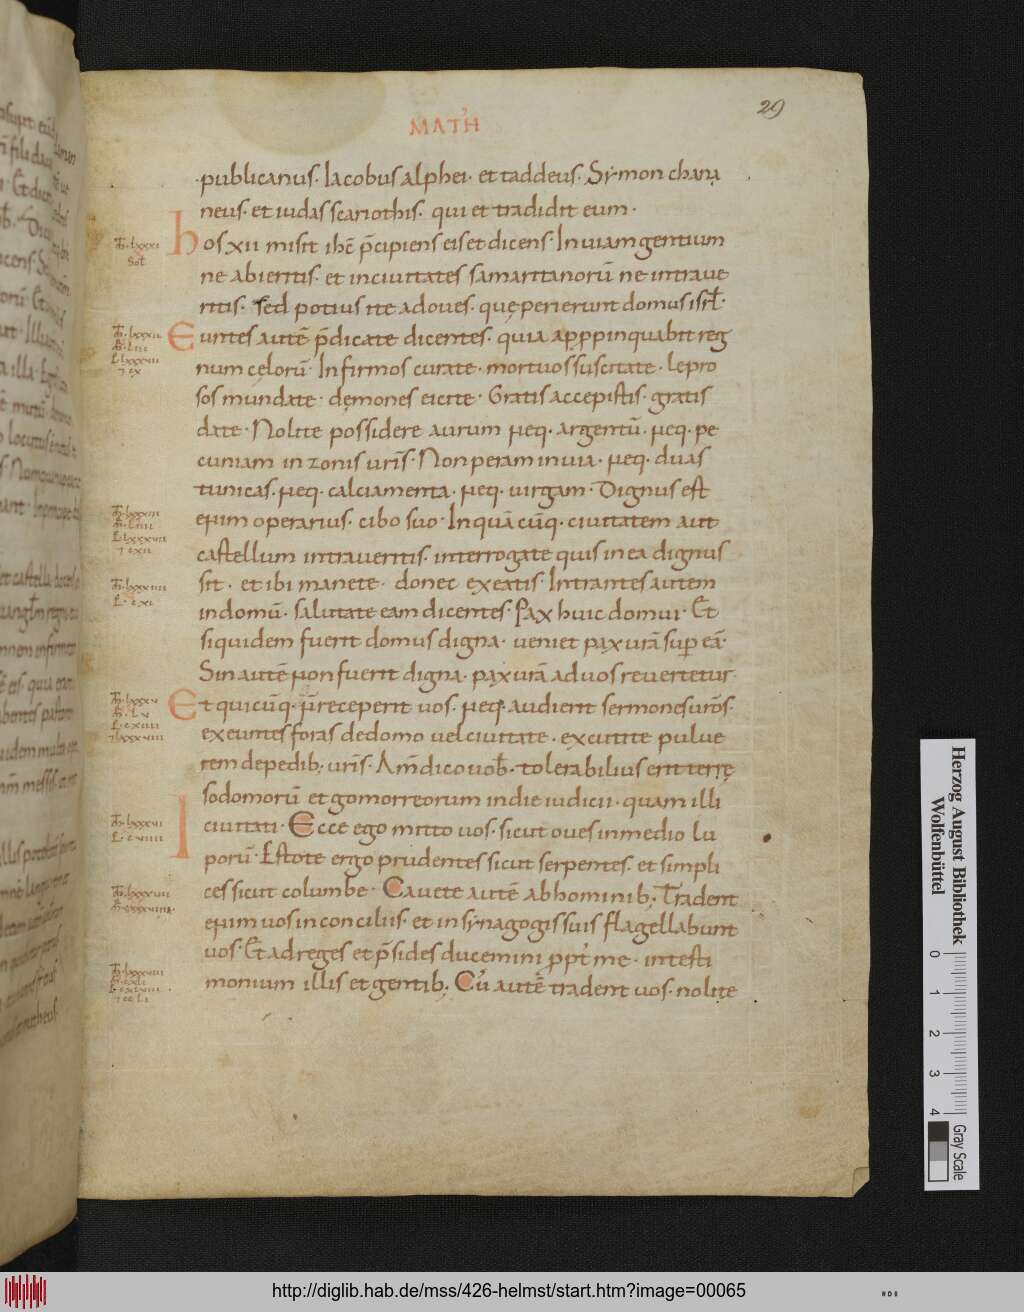 29
MATH
publicanus· Iacobus alphei· et taddeus· Symon chana
neus· et iudas scariothis· qui et tradidit eum·
hos xii misit ihc̄ p̄cipiens eis et dicens· In uiam gentium
ne abieritis· et in ciuitates samaritanorū ne intraue
ritis· sed potius ite ad oues· quę perierunt domus isrł·
Euntes autē p̄dicate dicentes· quia appropinquabit reg
num cęlorū· Infirmos curate· mortuos suscitate· lepro
sos mundate· dęmones eicite· Gratis accepistis· gratis
date· Nolite possidere aurum neq· argentū· neq· pe
cuniam in zonis uris̄· Non peram in uia· neq· duas
tunicas· neq· calciamenta· neq· uirgam· Dignus est
enim operarius· cibo suo· In quā cūq· ciuitatem aut
castellum intraueritis· interrogate quis in ea dignus
sit· et ibi manete· donec exeatis· Intrantes autem
in domū· salutate eam dicentes· Pax huic domui· Et
siquidem fuerit domus digna· ueniet pax urā sup eā·
Sin autē non fuerit digna· pax urā ad uos reuertetur·
Et quicūq· n̄ receperit uos· neq· audierit sermones uros̄·
exeuntes foras de domo uel ciuitate· excutite pulue
rem de pedib; uris̄· Am̄ dico uob̄· tolerabilius erit terrę
sodomorū et gomorreorum in die iudicii· quam illi
ciuitati· Ecce ego mitto uos· sicut oues in medio lu
porū· Estote ergo prudentes sicut serpentes· et simpli
ces sicut columbe· Cauete autē ab hominib; Tradent
enim uos in conciliis· et in synagogis suis flagellabunt
uos· Et ad reges et p̄sides ducemini ppt̓ me· in testi
monium illis et gentib; Cū autē tradent uos· nolite
Herzog August Bibliothek
Wolfenbüttel
0 1 2 3 4
Gray Scale
http://diglib.hab.de/mss/426-helmst/start.htm?image=00065